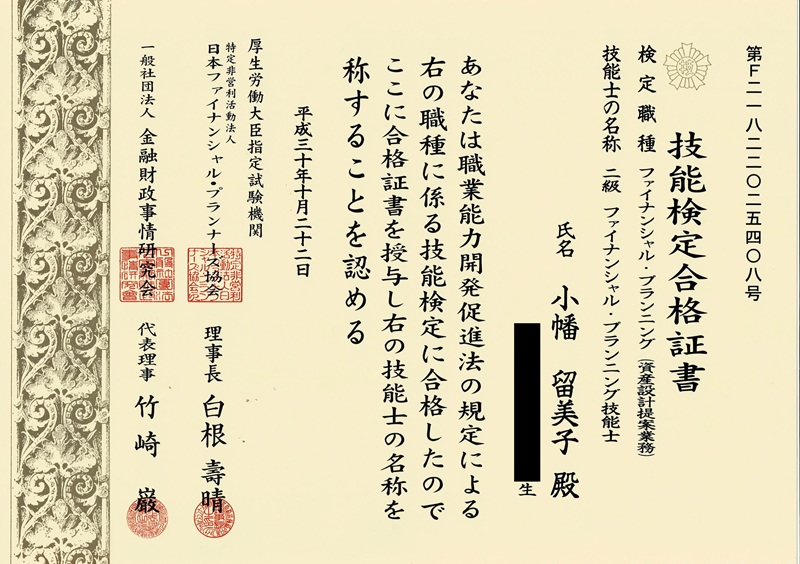 第F二一八二二〇二五四〇八号
技能検定合格証書
検定職種 ファイナンシャル・プランニング(資産設計提案業務)
技能士の名称 二級 ファイナンシャル・プランニング技能士
氏名 小幡 留美子 殿
生
あなたは職業能力開発促進法の規定による
右の職種に係る技能検定に合格したので
ここに合格証書を授与し右の技能士の名称を
称することを認める
平成三十年十月二十二日
厚生労働大臣指定試験機関
特定非営利活動法人
日本ファイナンシャル・プランナーズ協会 理事長 白根 壽晴
一般社団法人 金融財政事情研究会 代表理事 竹崎 巌